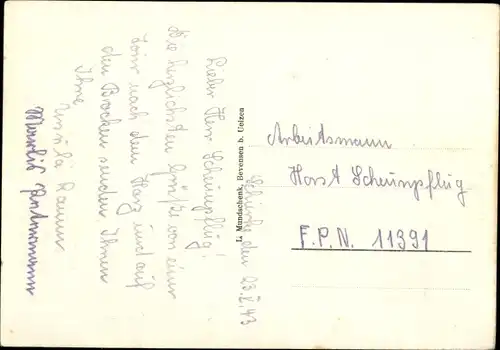 den 23.8.43
Lieber Herr Scheunpflug!
Die herzlichsten Grüße von einer
Tour nach dem Harz und auf
den Brocken senden Ihnen
Ihre
Ursula Ramm
L. Mundschenk, Bevensen b. Uelzen
Arbeitsmann
Horst Scheunpflug
F.P.N. 11391